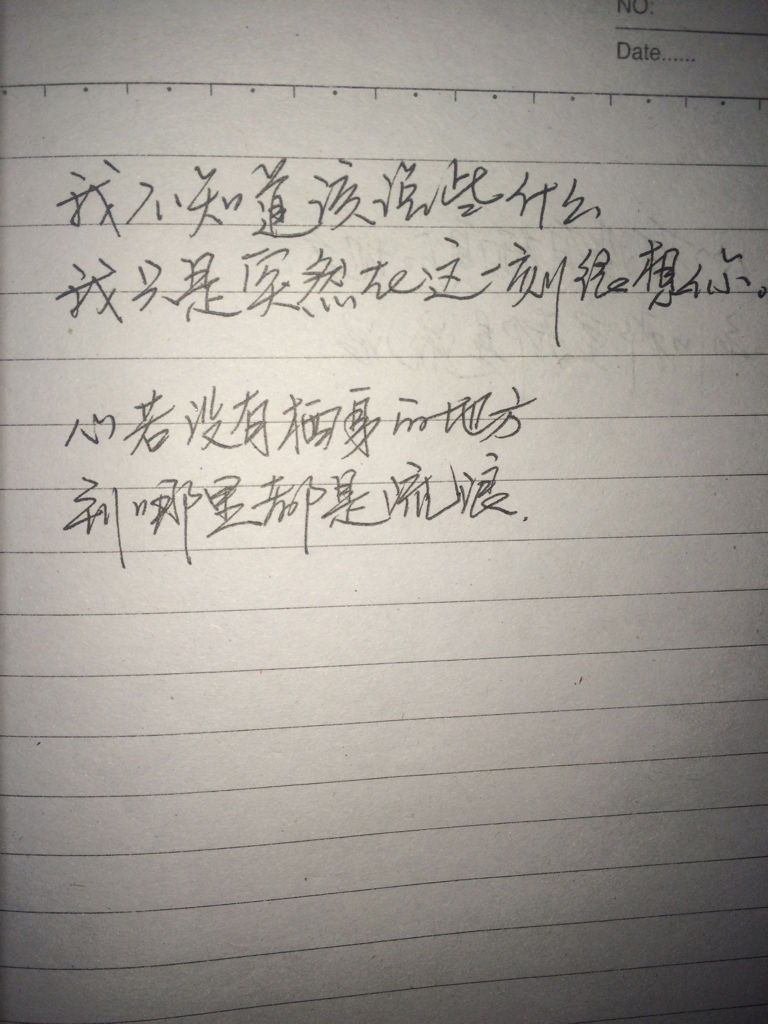 NO.
Date......
我不知道该说些什么
我只是突然在这一刻很想你。
心若没有栖身的地方
到哪里都是流浪.